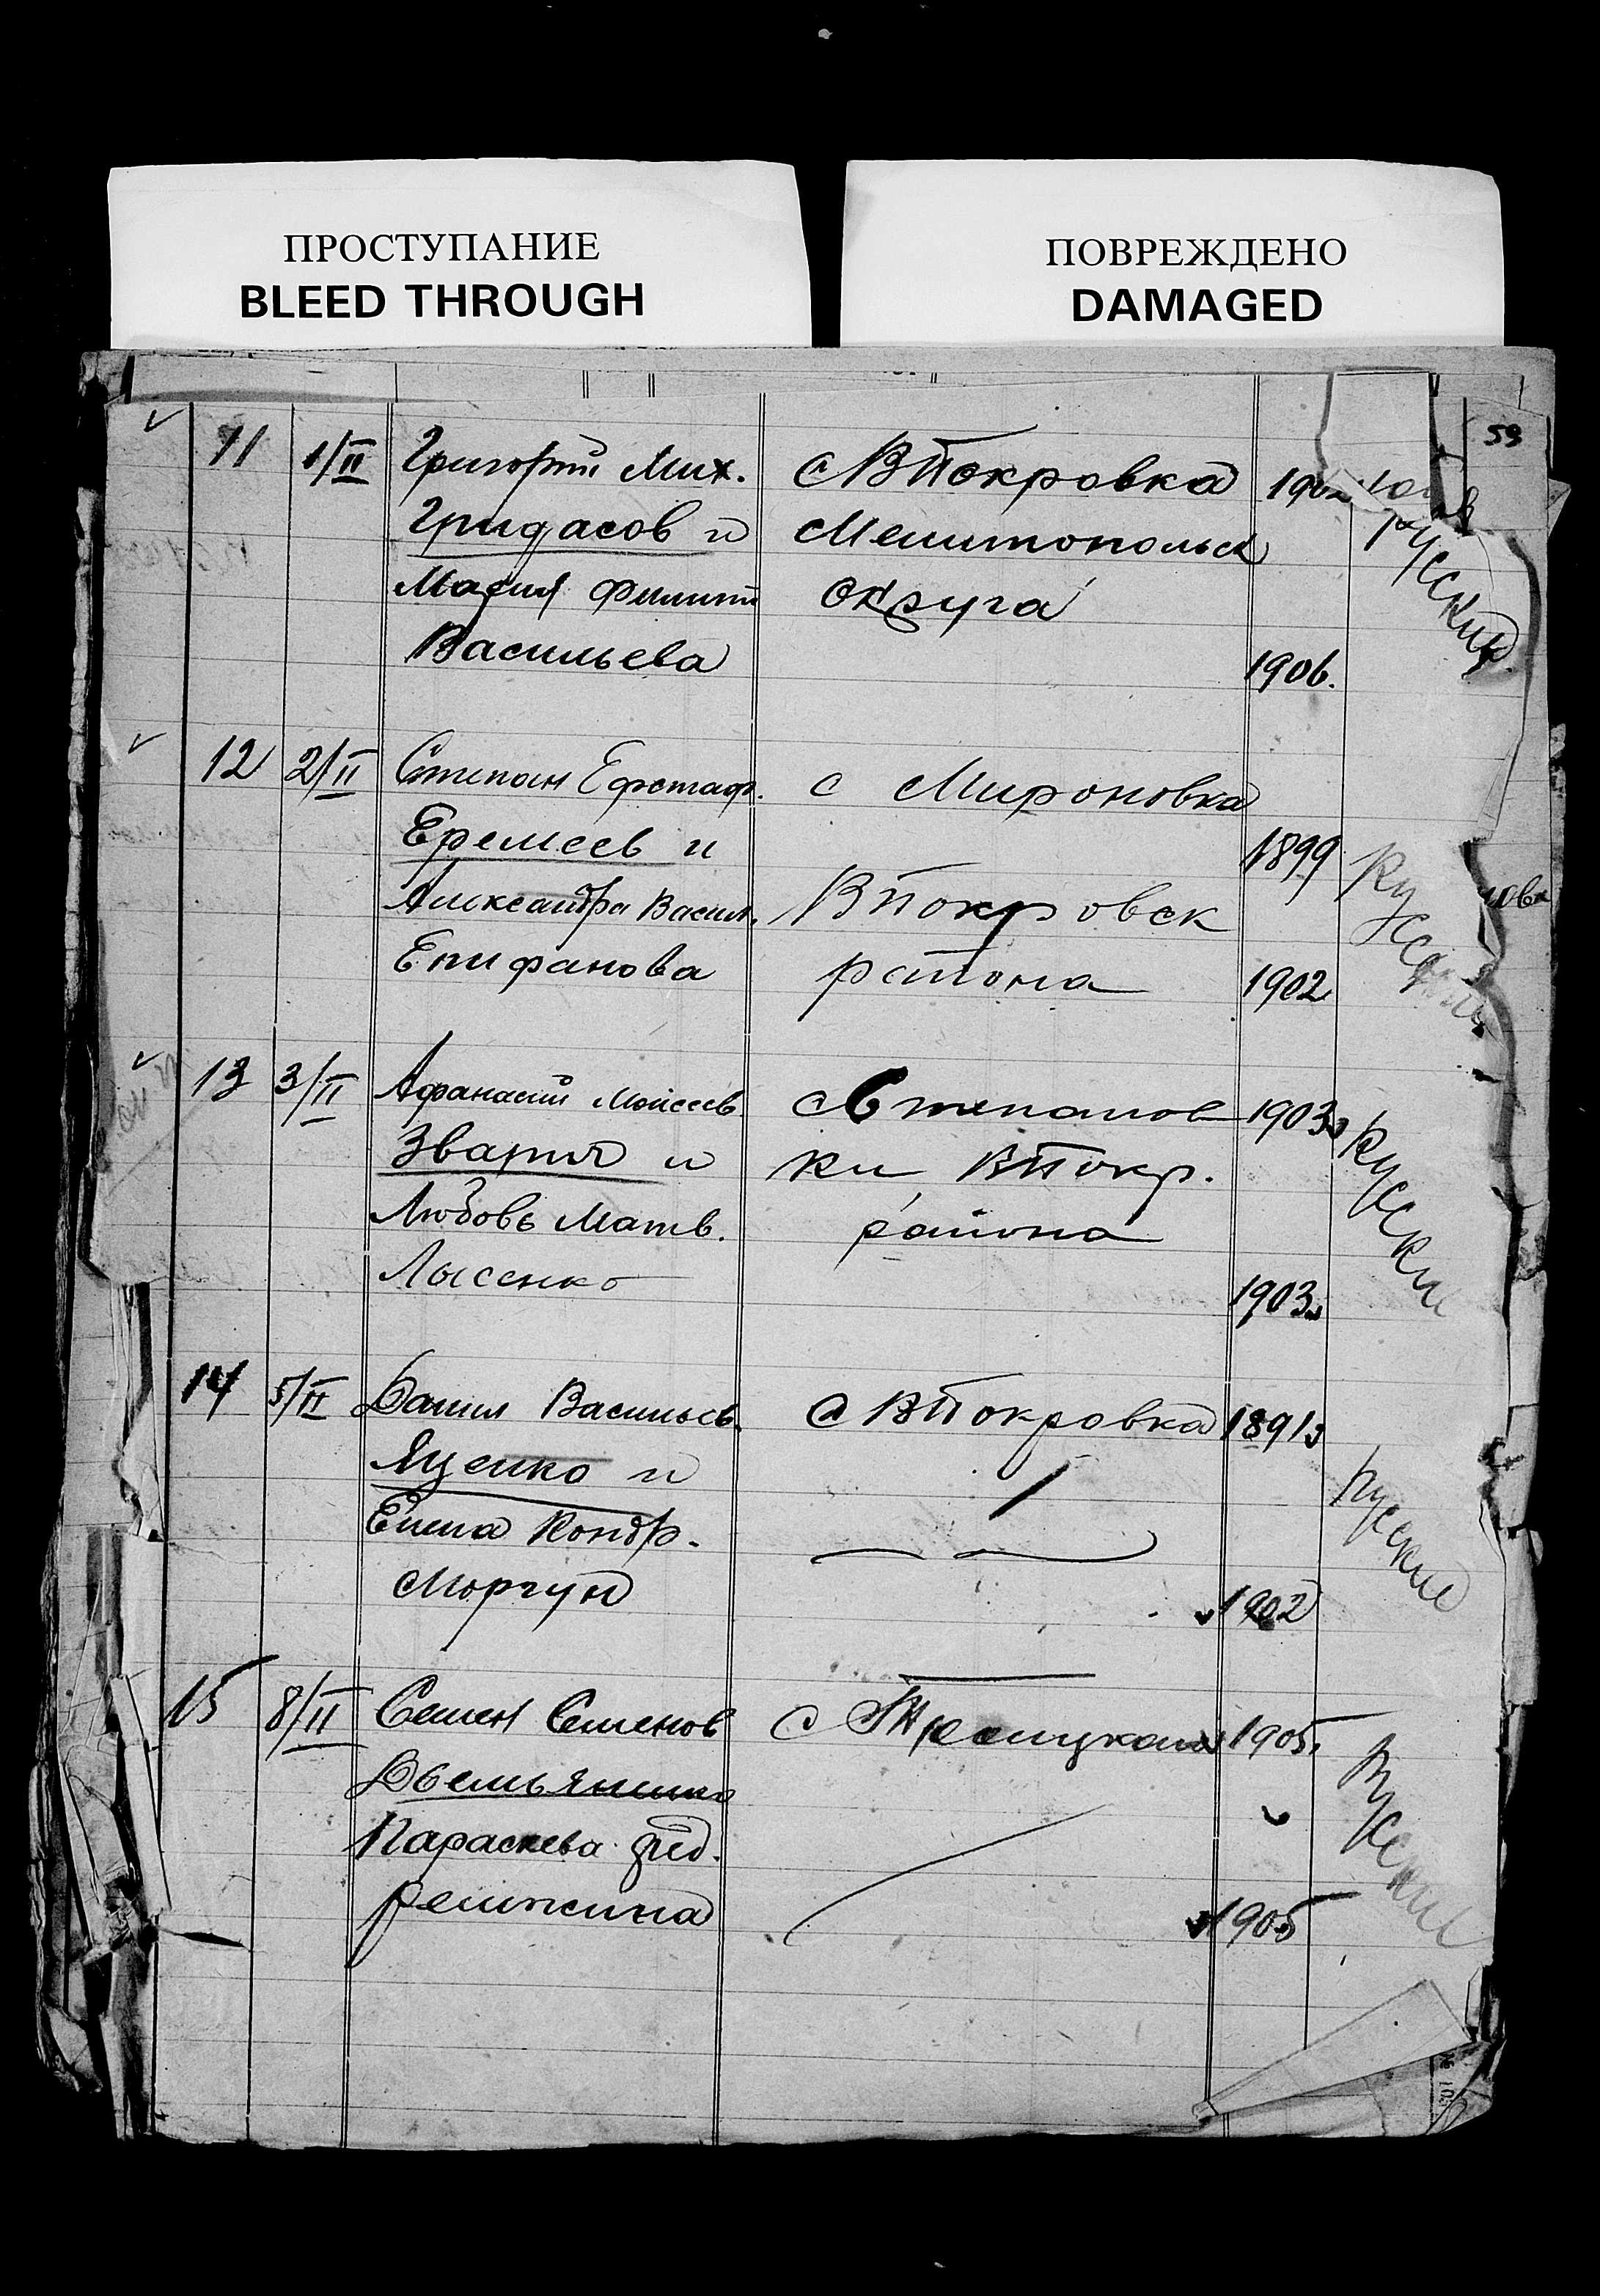 ПРОСТУПАНИЕ
BLEED THROUGH
ПОВРЕЖДЕНО
DAMAGED
59
11 1/II Григорий Мих. с ВПокровка
Гридасов и Мелитопольск
Мария Филипп округа
Васильева 1906.
Русские
12 2/II Степан Ефстаф. с Мироновка
Еремеев и 1899
Александра Васил. ВПокровск
Епифанова района 1902
Русские
13 3/II Афанасий Моисеев. с Степанов 1903
Зваричь и ки ВПокр.
Любовь Матв. района
Лысенко 1903
Русские
14 5/II Данил Васильев. с ВПокровка 1891
Яценко и
Елена Кондр.
Моргун 1902
Русские
15 8/II Семен Семенов с 1905
Параскева Фед.
1905
Русские